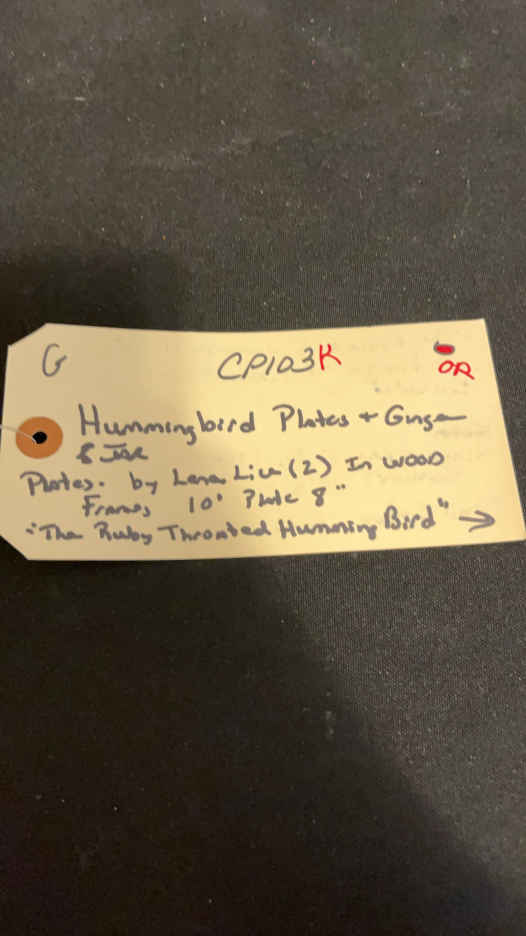 G CP103K OR
Hummingbird Plates + Ginger
& Jar
Plates. by Lena Liu (2) In WOOD
Frames 10" Plate 8"
"The Ruby Throated Humming Bird" →